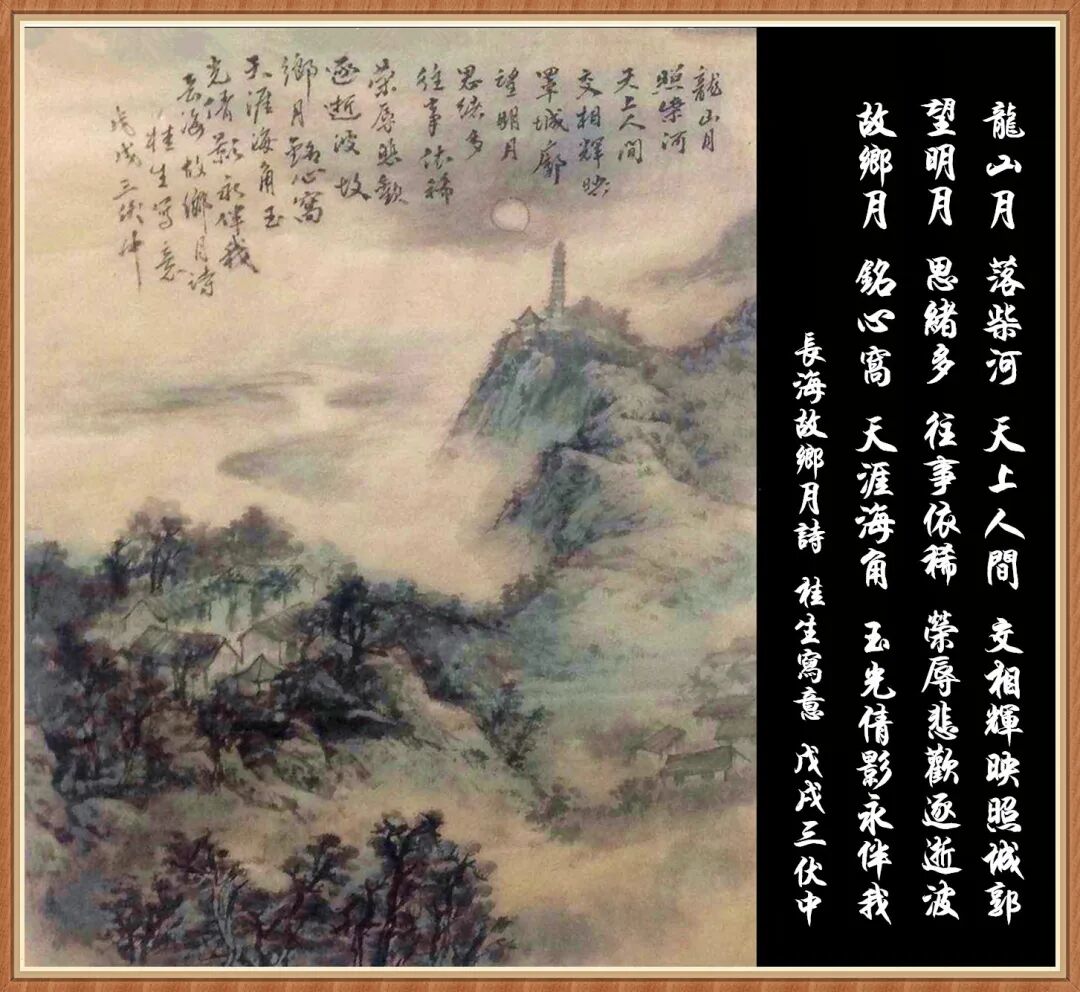 龍山月
照柴河
天上人間
交相輝映
罩城廓
望明月
思緒多
往事依稀
榮辱悲歡
逐逝波故
鄉月銘心窩
天涯海角玉
光倩影永伴我
長海故鄉月詩
桂生写意
戊戌三伏中
龍山月 落柴河 天上人間 交相輝映照城郭
望明月 思緒多 往事依稀 榮辱悲歡逐逝波
故鄉月 銘心窩 天涯海角 玉光倩影永伴我
長海故鄉月詩 桂生寫意 戊戌三伏中